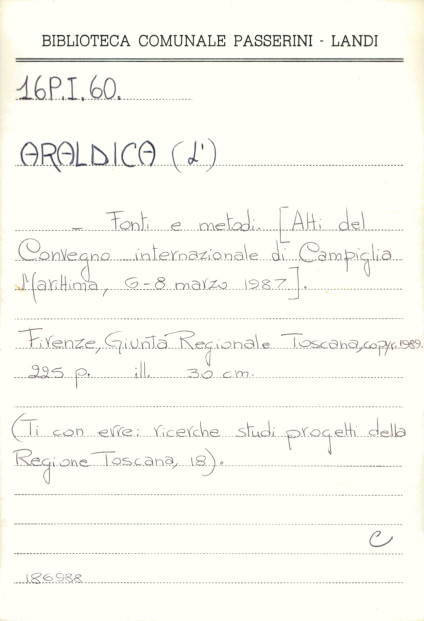 BIBLIOTECA COMUNALE PASSERINI - LANDI
16P.I.60.
ARALDICA (L')
- Fonti e metodi. [Atti del
Convegno internazionale di Campiglia
Marittima, 6-8 marzo 1987].
Firenze, Giunta Regionale Toscana, copyr. 1989.
225 p. ill. 30 cm.
(Ti con erre: ricerche studi progetti della
Regione Toscana, 18).
C
186988